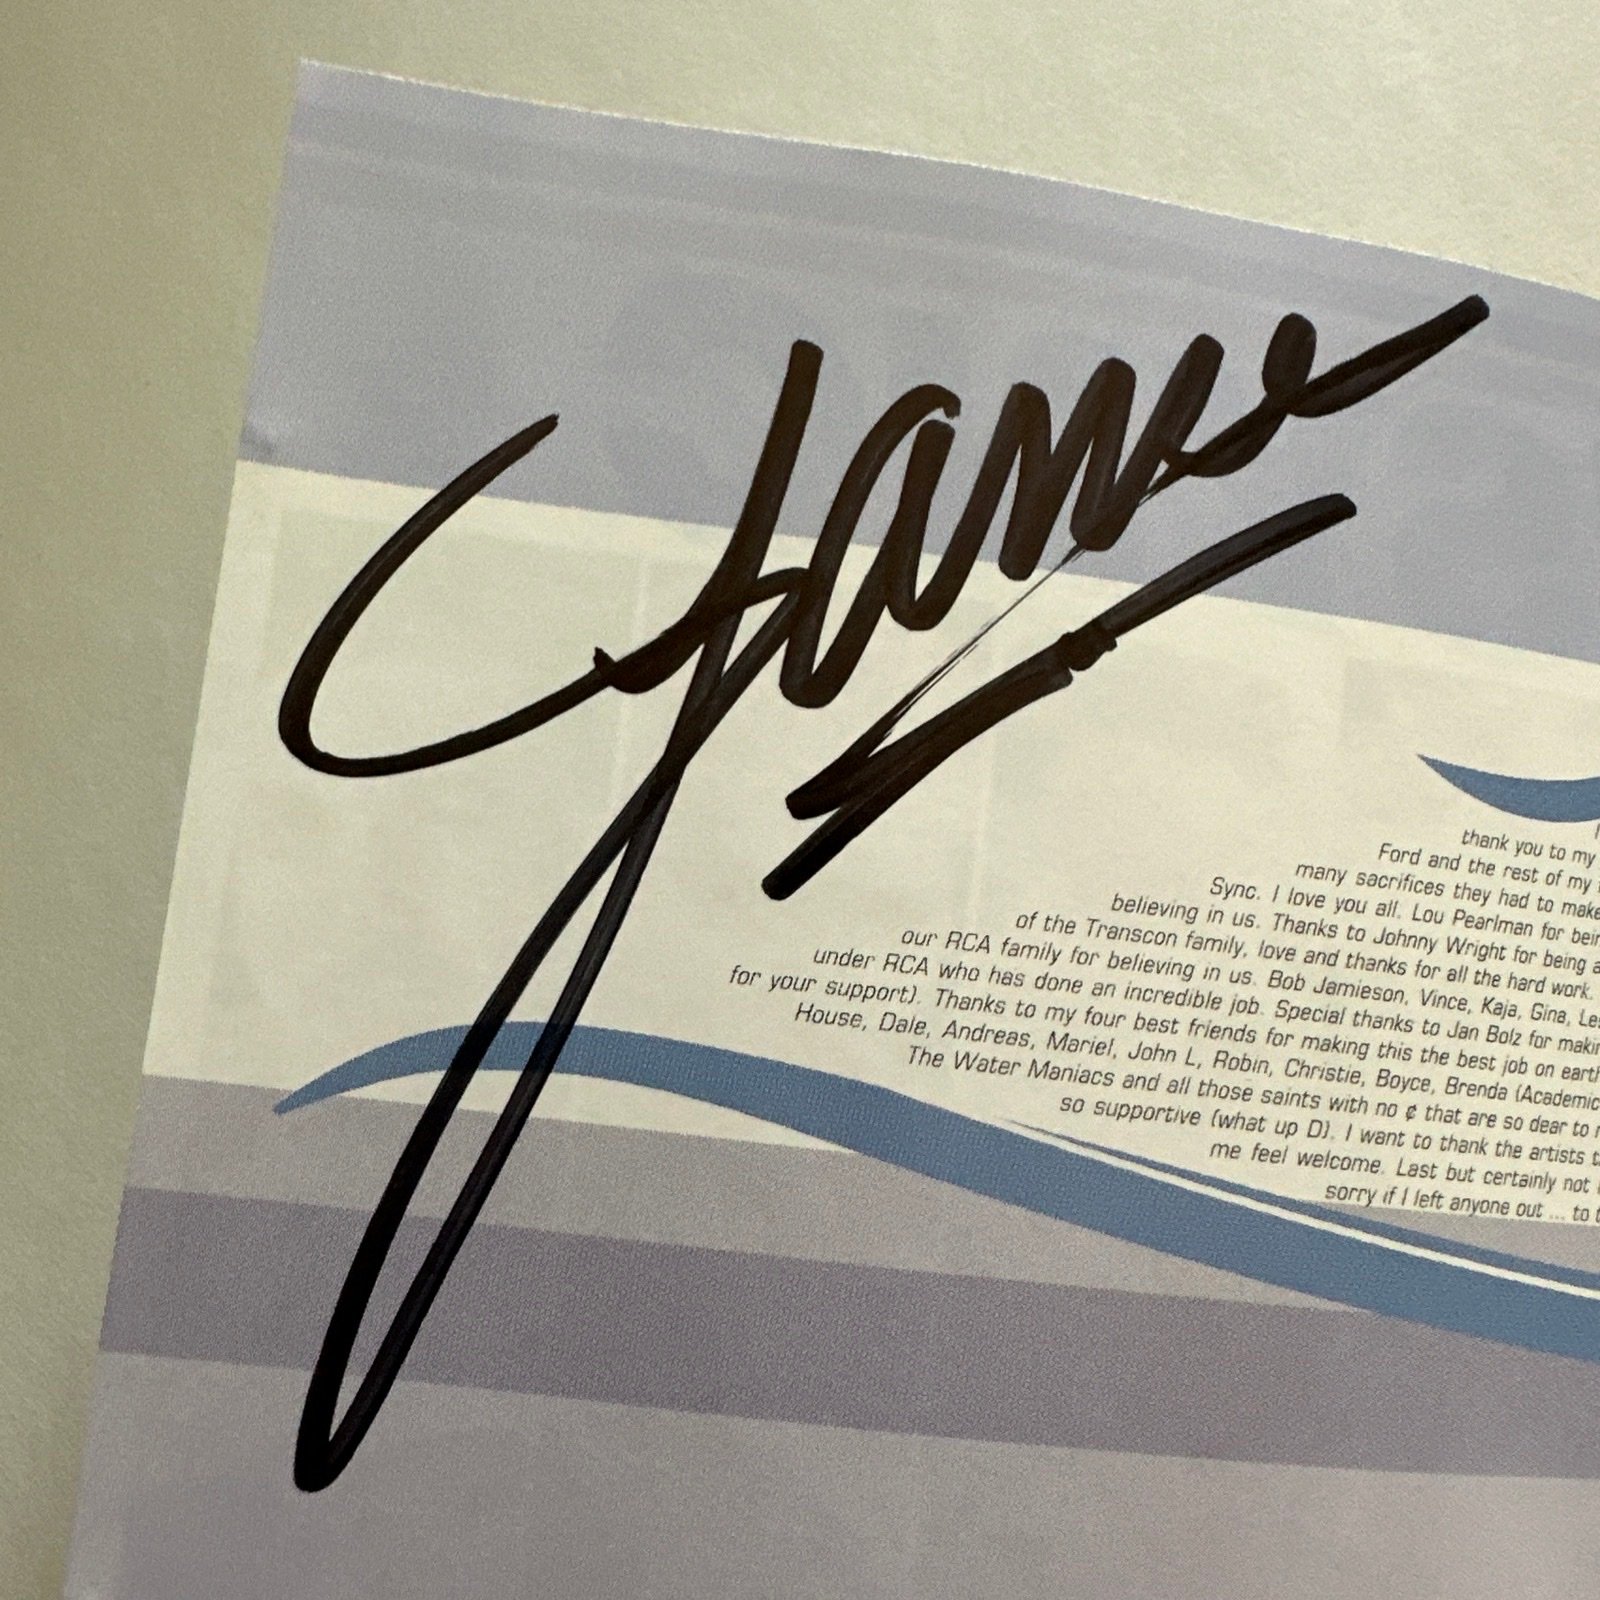 Lance
thank you to my
Ford and the rest of my
many sacrifices they had to make
Sync. I love you all. Lou Pearlman for
believing in us. Thanks to Johnny Wright for being a
of the Transcon family, love and thanks for all the hard work.
our RCA family for believing in us. Bob Jamieson, Vince, Kaja, Gina,
under RCA who has done an incredible job. Special thanks to Jan Bolz for
for your support). Thanks to my four best friends for making this the best job on earth
House, Dale, Andreas, Mariel, John L, Robin, Christie, Boyce, Brenda (Academic
The Water Maniacs and all those saints with no ¢ that are so dear to
so supportive (what up D). I want to thank the artists
me feel welcome. Last but certainly not
sorry if I left anyone out ... to